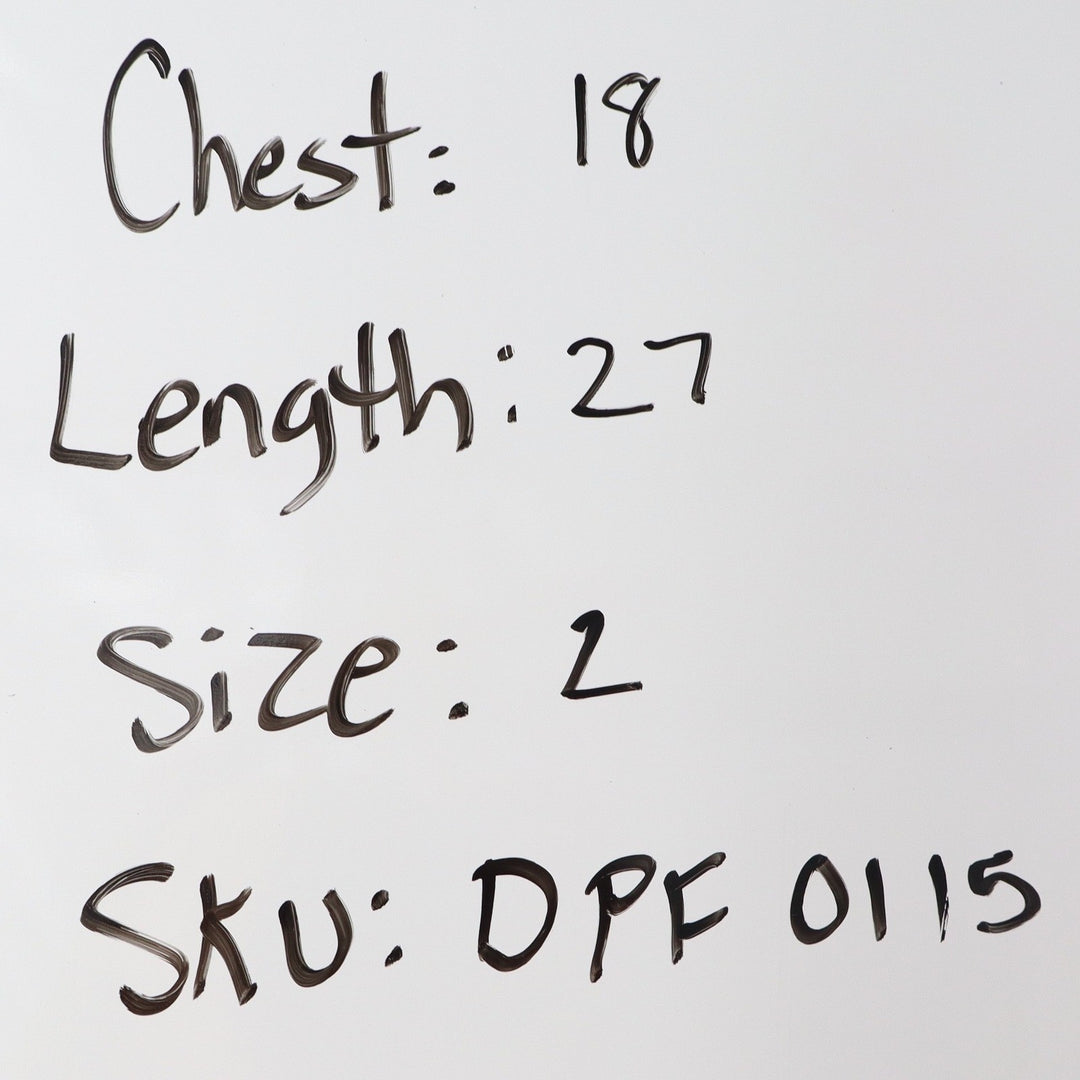 Chest: 18
Length: 27
Size: 2
SKU: DPF 0115